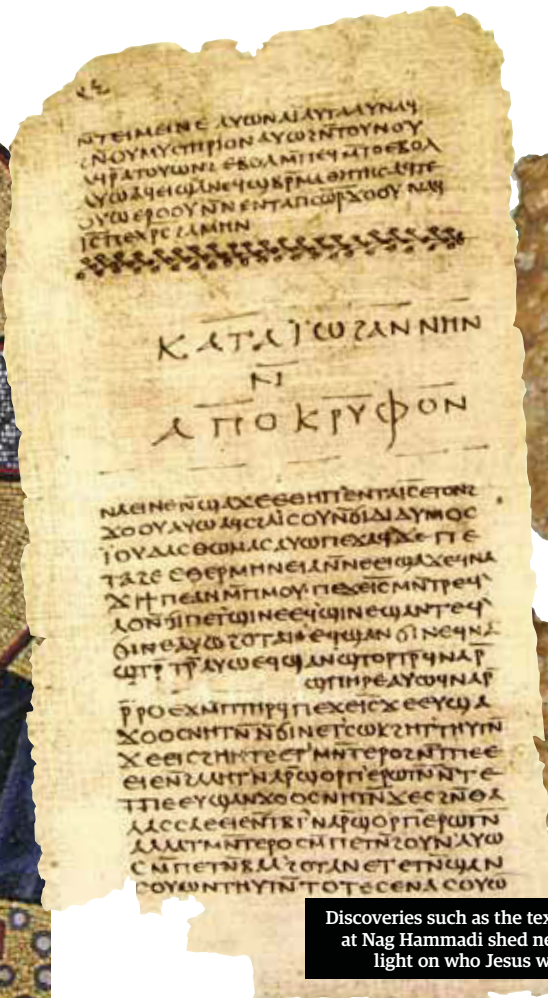 ⲛ̄ⲧⲉⲓⲙⲉⲓⲛⲉ ⲁⲩⲱ ⲛⲁⲓ ⲁⲩⲧⲁⲁⲩ ⲛⲁϥ
ϩⲛⲟⲩⲙⲩⲥⲧⲏⲣⲓⲟⲛ ⲁⲩⲱ ϩⲛ̄ⲧⲟⲩⲛⲟⲩ
ⲁϥⲣ̄ⲁⲧⲟⲩⲱⲛϩ ⲉⲃⲟⲗ ⲙ̄ⲡⲉϥⲙ̄ⲧⲟ ⲉⲃⲟⲗ
ⲁⲩⲱ ⲁϥⲉⲓ ϣⲁⲛⲉϥϣⲃⲣ̄ⲙⲁⲑⲏⲧⲏⲥ ⲁϥⲧⲉ
ⲟⲩⲱ ⲉⲣⲟⲟⲩ ⲛ̄ⲛⲉⲛⲧⲁⲡⲥⲱⲣ ϫⲟⲟⲩ ⲛⲁϥ
ⲓ̅ⲥ̅ ⲡⲉⲭⲣ̅ⲥ̅ ϩⲁⲙⲏⲛ
ⲕⲁⲧⲁ ⲓ̈ⲱϩⲁⲛⲛⲏⲛ
ⲛ̄
ⲁⲡⲟⲕⲣⲩⲫⲟⲛ
ⲛⲁⲉⲓ ⲛⲉ ⲛ̄ϣⲁϫⲉ ⲉⲑⲏⲡ ⲉⲛⲧⲁⲓ̅ⲥ̅ ⲉⲧⲟⲛϩ
ϫⲟⲟⲩ ⲁⲩⲱ ⲁϥⲥϩⲁⲓⲥⲟⲩ ⲛ̄ϭⲓ ⲇⲓⲇⲩⲙⲟⲥ
ⲓ̈ⲟⲩⲇⲁⲥ ⲑⲱⲙⲁⲥ ⲁⲩⲱ ⲡⲉϫⲁϥ ϫⲉ ⲡⲉ
ⲧⲁϩⲉ ⲉⲑⲉⲣⲙⲏⲛⲉⲓⲁ ⲛ̄ⲛⲉⲉⲓϣⲁϫⲉ ϥⲛⲁ
ϫⲓ ϯⲡⲉ ⲁⲛ ⲙ̄ⲡⲙⲟⲩ ⲡⲉϫⲉ ⲓ̅ⲥ̅ ⲙⲛ̄ⲧⲣⲉϥ
ⲗⲟ ⲛ̄ϭⲓ ⲡⲉⲧϣⲓⲛⲉ ⲉϥϣⲓⲛⲉ ϣⲁⲛⲧⲉϥ
ϭⲓⲛⲉ ⲁⲩⲱ ϩⲟⲧⲁⲛ ⲉϥϣⲁⲛϭⲓⲛⲉ ϥⲛⲁ
ϣⲧⲣ̄ⲧⲣ̄ ⲁⲩⲱ ⲉϥϣⲁⲛϣⲧⲟⲣⲧⲣ̄ ϥⲛⲁⲣ̄
ϣⲡⲏⲣⲉ ⲁⲩⲱ ϥⲛⲁⲣ̄
ⲣ̄ⲣⲟ ⲉϫⲙ̄ ⲡⲧⲏⲣϥ ⲡⲉϫⲉ ⲓ̅ⲥ̅ ϫⲉ ⲉⲩϣⲁ
ϫⲟⲟⲥ ⲛⲏⲧⲛ̄ ⲛ̄ϭⲓ ⲛⲉⲧⲥⲱⲕ ϩⲏⲧ ⲧⲏⲩⲧⲛ̄
ϫⲉ ⲉⲓⲥϩⲏⲏⲧⲉ ⲉⲧⲙⲛ̄ⲧⲉⲣⲟ ϩⲛ̄ ⲧⲡⲉ ⲉ
ⲉⲓⲉ ⲛ̄ϩⲁⲗⲏⲧ ⲛⲁⲣ̄ϣⲟⲣⲡ ⲉⲣⲱⲧⲛ̄ ⲛ̄ⲧⲉ
ⲧⲡⲉ ⲉⲩϣⲁⲛϫⲟⲟⲥ ⲛⲏⲧⲛ̄ ϫⲉ ⲥϩⲛ̄ ⲑⲁ
ⲗⲁⲥⲥⲁ ⲉⲉⲓⲉ ⲛ̄ⲧⲃⲧ ⲛⲁⲣ̄ϣⲟⲣⲡ ⲉⲣⲱⲧⲛ̄
ⲁⲗⲗⲁ ⲧⲙⲛ̄ⲧⲉⲣⲟ ⲥⲙ̄ⲡⲉⲧⲛ̄ϩⲟⲩⲛ ⲁⲩⲱ
ⲥⲙ̄ⲡⲉⲧⲛ̄ⲃⲁⲗ ϩⲟⲧⲁⲛ ⲉⲧⲉⲧⲛ̄ϣⲁⲛ
ⲥⲟⲩⲱⲛ ⲧⲏⲩⲧⲛ̄ ⲧⲟⲧⲉ ⲥⲉⲛⲁⲥⲟⲩⲱ
Discoveries such as the tex
at Nag Hammadi shed ne
light on who Jesus w